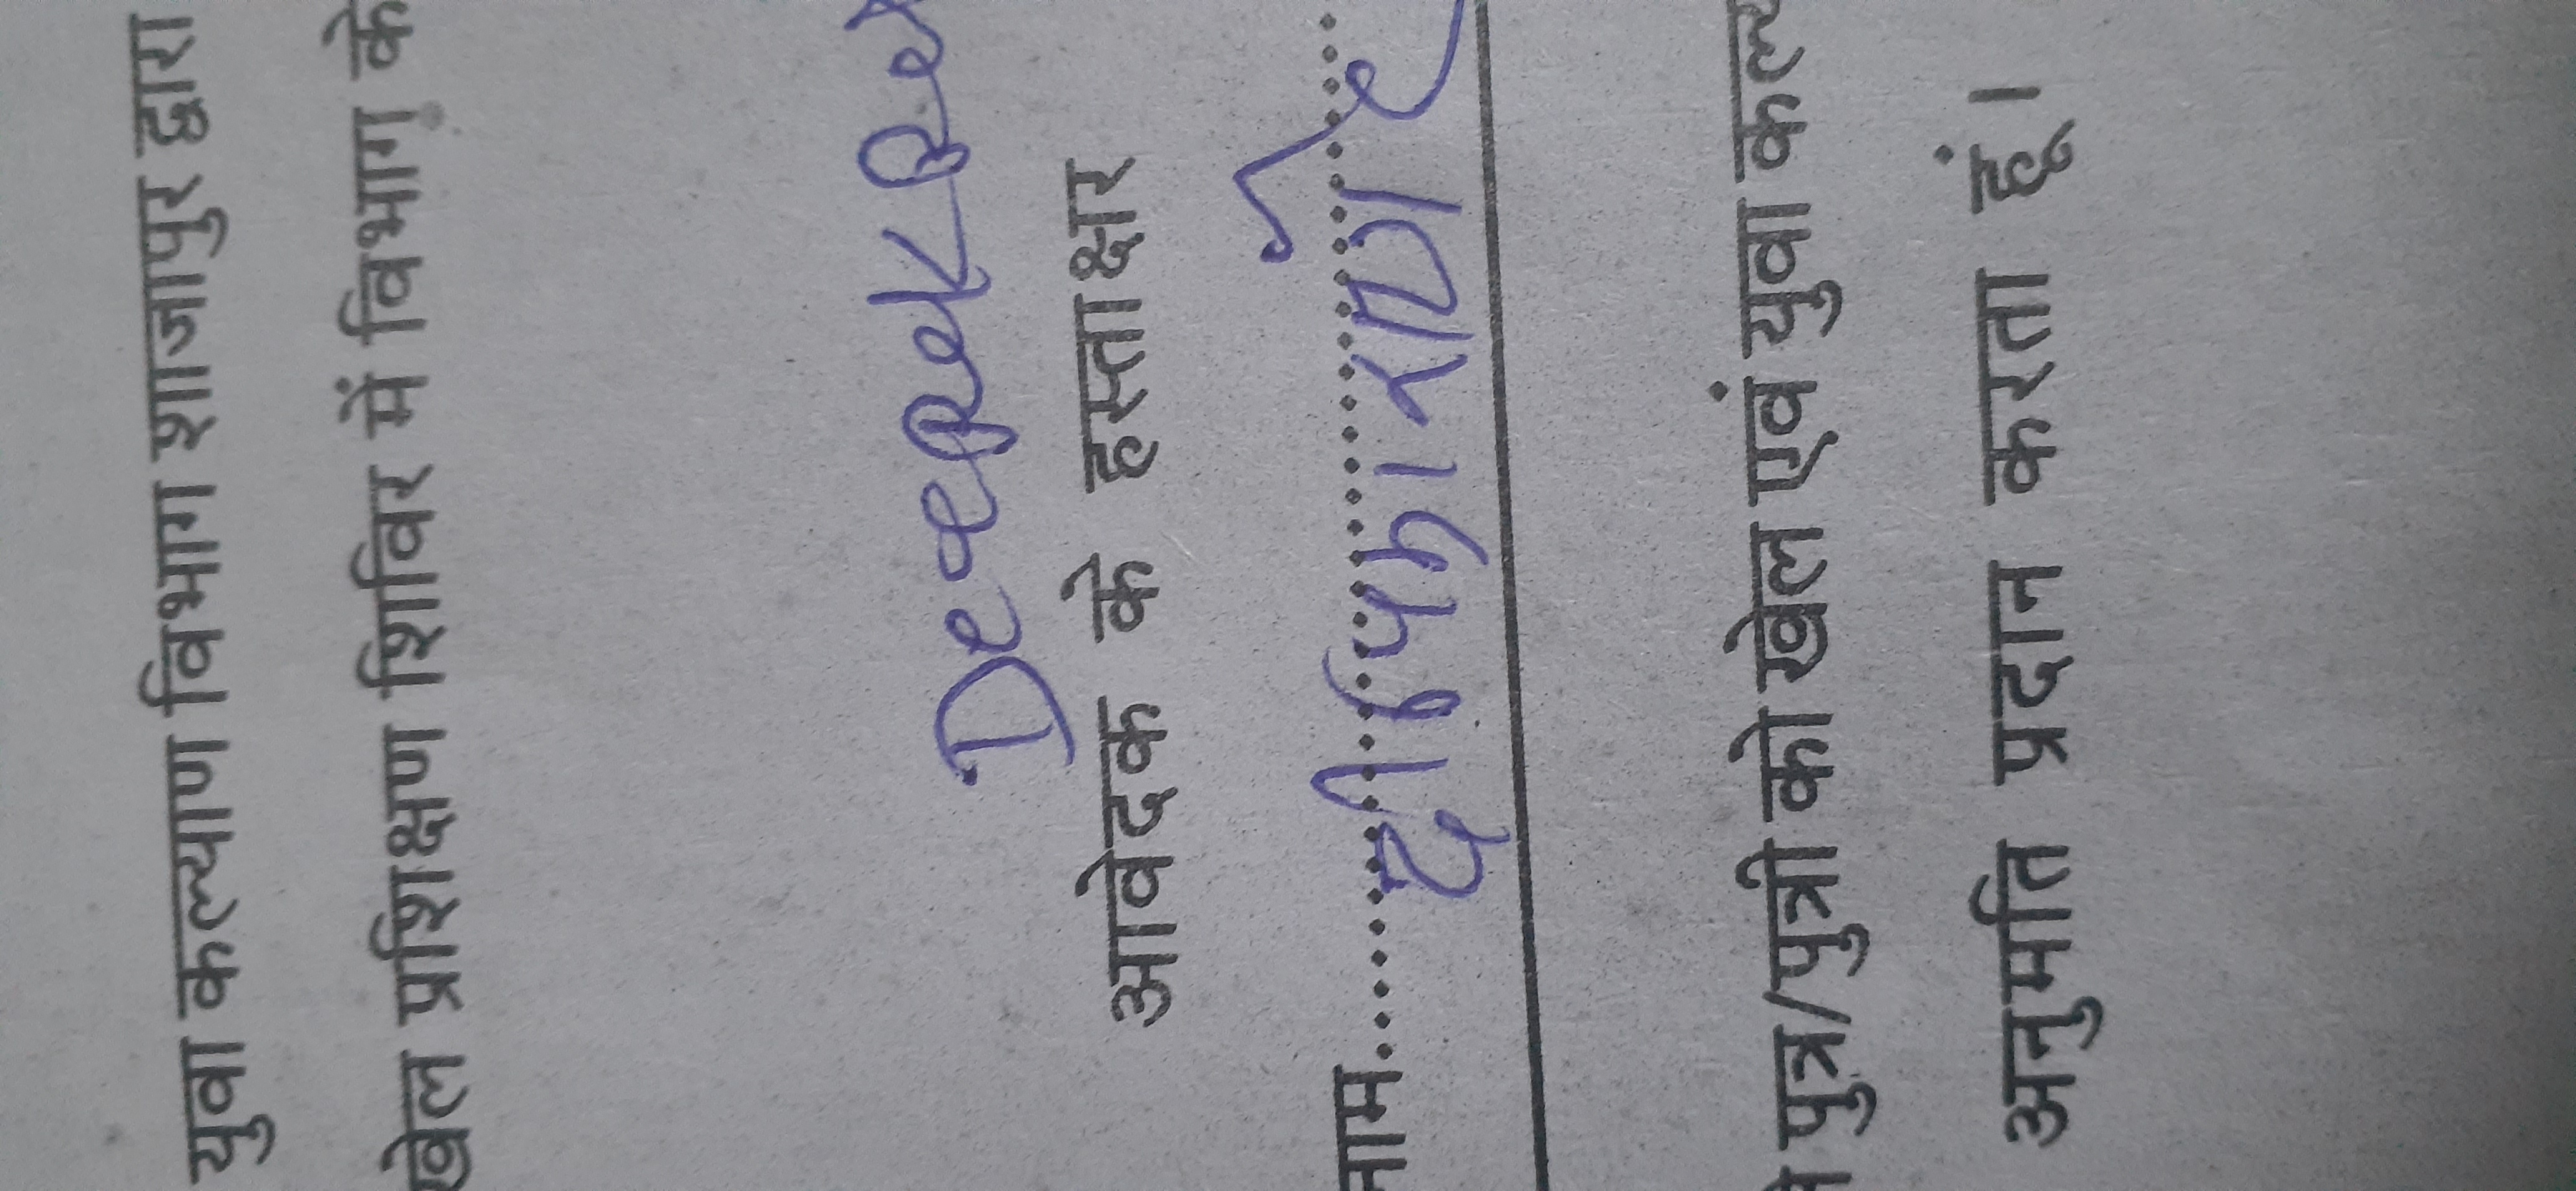 युवा कल्याण विभाग शाजापुर द्वारा
खेल प्रशिक्षण शिविर में विभाग के
Deepak
आवेदक के हस्ताक्षर
नाम.......
पुत्र/पुत्री को खेल एवं युवा कल्
अनुमति प्रदान करता हूं।